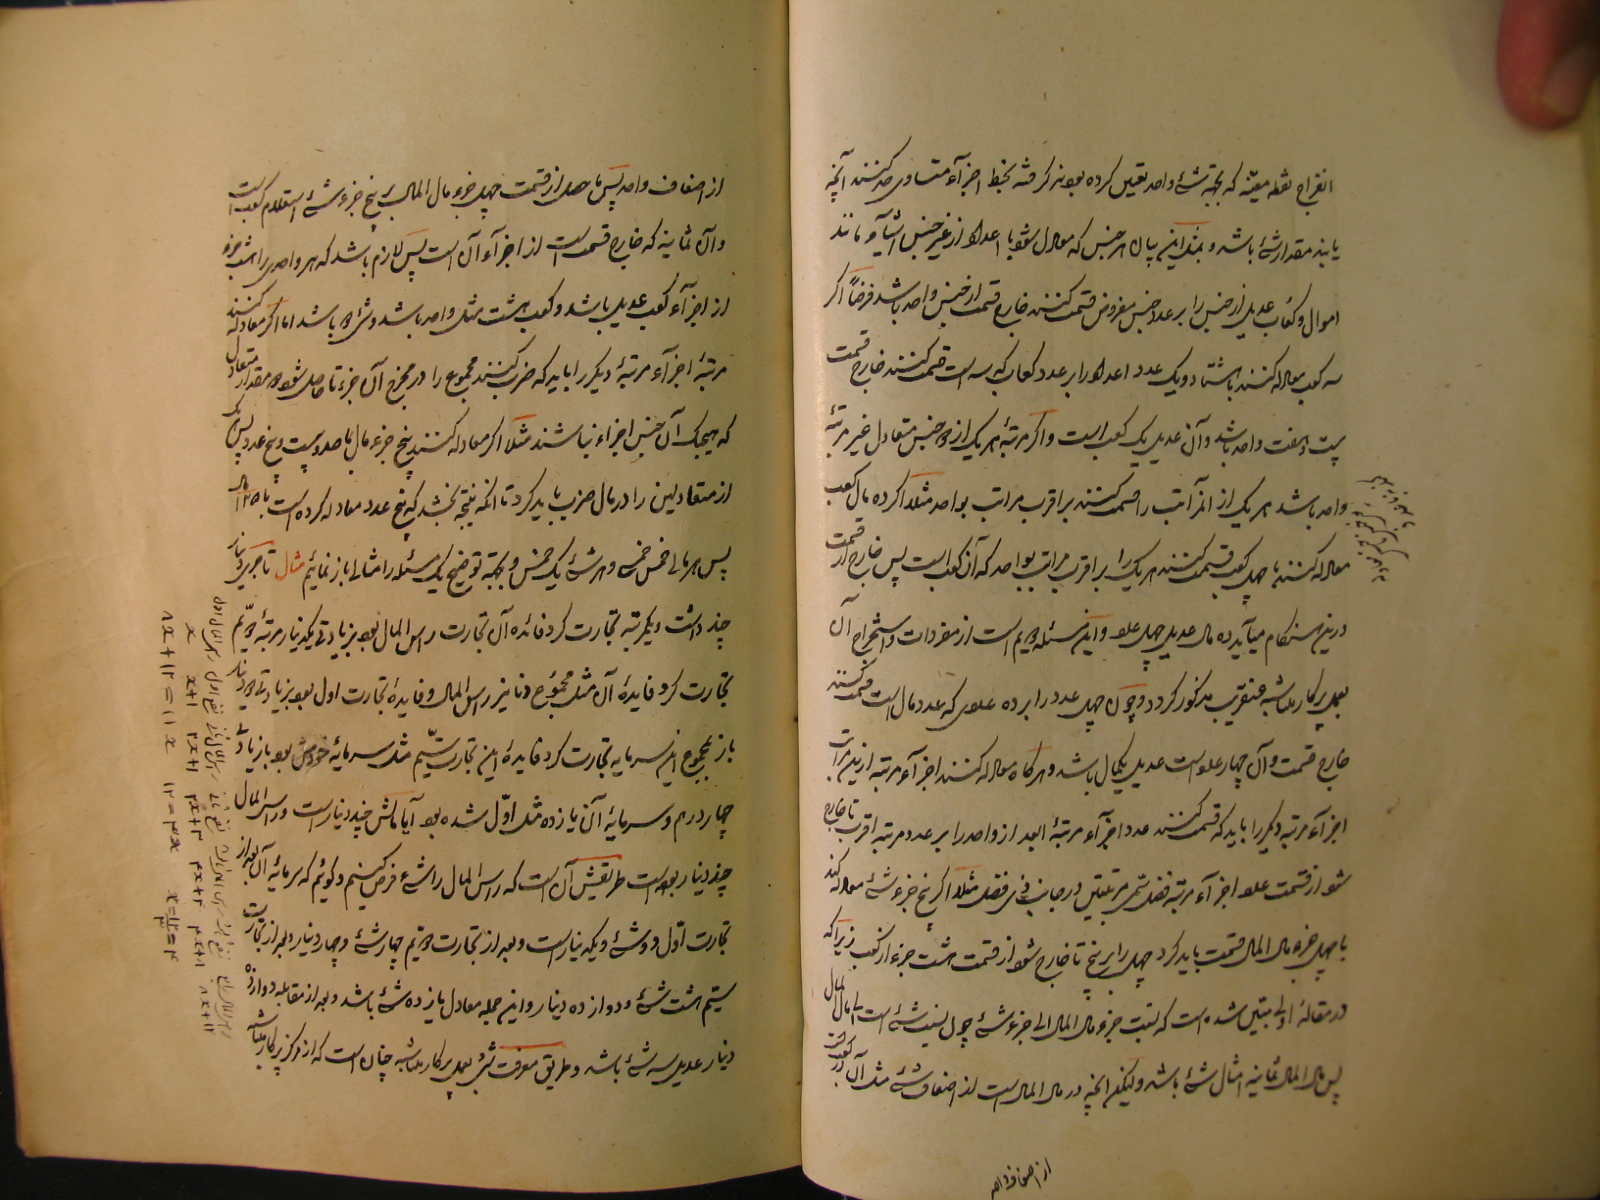 انفراج نقطه معینه که بجهة شئ واحد تعیین کرده بودند گرفته بخط اجزاء متساوی حد کنند آنچه
یابند مقدار شئ باشد و بمثل این بیان هر جنس که معادل شود با اعداد از غیر جنس اشیآء مانند
اموال و کعاب عدیل از جنس را بر عدد جنس مفروض قسمت کنند خارج قسمت از جنس واحد باشد فرضاً اگر
سه کعب معادله کنند با هشتاد و یک عدد اعداد را بر عدد کعاب که سه است قسمت کنند خارج قسمت
بیست و هفت واحد باشد و آن عدیل یک کعب است و اگر مرتبهٔ هر یک از دو جنس متعادل غیر مرتبهٔ
واحد باشد هر یک از آن مراتب را قسمت کنند بر اقرب مراتب بواحد مثلا اگر ده مال کعب
معادله کنند با چهل کعب قسمت کنند هر یک را بر اقرب مراتب بواحد که آن کعب است پس خارج از قسمت
درین هنگام میآید ده مال عدیل چهل عدد و این مسئله دویم است از مفردات و استخراج آن
بعمل پرکار متناسبه عنقریب مذکور گردد و چون چهل عدد را بر ده عددی که عدد مال است قسمت کنند
خارج قسمت و آن چهار عدد است عدیل یکمال باشد و هر گاه معادله کنند اجزآء مرتبه از این مراتب
اجزآء مرتبه دیگر را باید که قسمت کنند عدد اجزآء مرتبهٔ ابعد از واحد را بر عدد مرتبه اقرب تا خارج
شود از قسمت عدد اجزآء مرتبه فضل سمی مرتبتین در جانب ذی فضل مثلا اگر پنج جزء شئ معادله کند
با چهل جزء مال المال قسمت باید کرد چهل را بر پنج تا خارج شود از قسمت هشت جزء از کعب زیرا که
در مقالهٔ اولی مبین شده است که نسبت جزء مال المال الی جزء شئ چون نسبت شئ است الی مال المال
پس مال المال ثمانیه امثال شئ باشد ولیکن آنچه در مال المال است از اضعاف شئ مثل آن در کعب است
از اضعاف واحد
از اضعاف واحد پس حاصل از قسمت چهل جزء مال المال بر پنج جزء شئ استعلام کعب است
و آن ثمانیه که خارج قسمت است از اجزآء آن است پس لازم باشد که هر واحدی را هشت جزء
از اجزآء کعب عدیل باشد و کعب هشت مثل واحد باشد و شئ دو باشد اما اگر معادله کنند
مرتبهٔ اجزآء مرتبهٔ دیگر را باید که ضرب کنند مجموع را در مخرج آن جزء تا حاصل شود دو مقدار متعادل
که هیچیک آن جنس اجزاء نباشند مثلا اگر معادله کنند پنج جزء مال با صد و بیست و پنج عدد پس هر یک
از متعادلین را در مال ضرب باید کرد تا آنکه نتیجه بخشد که پنج عدد معادله کرده است با ۱۲۵ مال
پس هر مالی خمس خمس و هر شئ یک خمس و بجهة توضیح یک مسئله را مثالی باز نمائیم مثال تاجری دینار
چند داشت و یکمرتبه تجارت کرد فائده آن تجارت رأس المال بود بزیادتی یکدینار مرتبهٔ دویم
تجارت کرد فایدهٔ آن مثل مجموع دنانیر رأس المال و فایدهٔ تجارت اول بود بزیادتی دو دینار
باز بمجموع این سرمایه تجارت کرد فایدهٔ این تجارت سیّم مثل سرمایهٔ خودش بود با زیادتی
چهار درم و سرمایهٔ آن یازده مثل اوّل شده بود آیا مالش چند دینار است و رأس المال
چند دینار بوده است طریقش آن است که رأس المال را شئ فرض کنیم و گوئیم که سرمایهٔ آن بعد از
تجارت اوّل دو شئ و یکدینار است و بعد از تجارت دویم چهار شئ و چهار دینار و بعد از تجارت
سیّم هشت شئ و دوازده دینار و این جمله معادل یازده شئ باشد و بعد از مقابله دوازده
دینار عدیل سه شئ باشد و طریق معرفت شئ بعمل پرکار متناسبه چنان است که از مرکز پرکار متناسبه